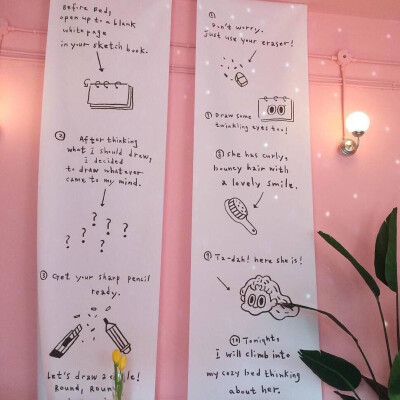 Before Bed,
open up to a blank
white page
in your sketch book.
②
After thinking
what i should draw,
i decided
to draw whatever
came to my mind.
? ? ? ? ? ?
③ Get your sharp pencil
ready.
Let's draw a
Round, Round
⑤
Don't worry.
just use your eraser!
⑦ Draw some
twinkling eyes too!
⑧ she has curly,
bouncy hair with
a lovely smile.
⑨ Ta-dah! here she is!
⑩ Tonight,
i will climb into
my cozy bed thinking
about her.